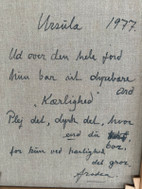 Ursula 1977.
Ud over den hele jord
kun bær ét dyrebare
ord
"Kærlighed"
Plej det, dyrk det, hvor
end du bor,
for kun ved kærlighed
det gror